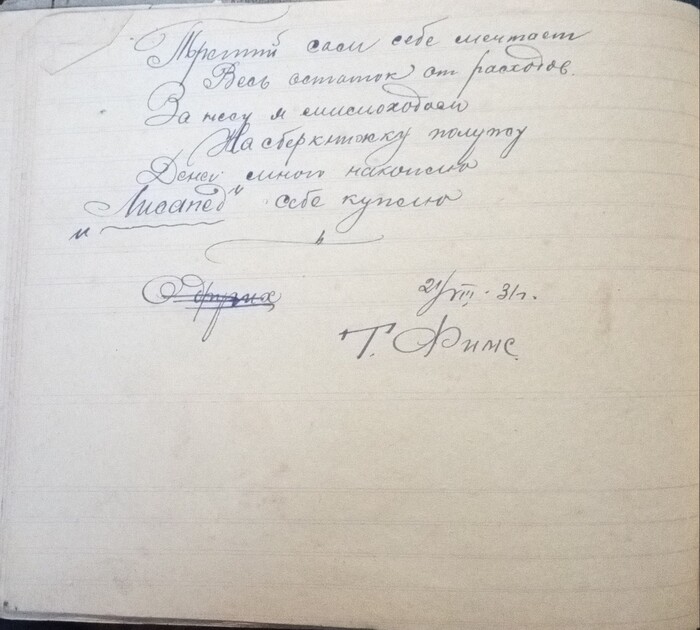 Третий сам себе мечтает
Весь остаток от расходов.
Занесу я мимоходом
На сберкнижку положу
Денег много накоплю
"Лисапед" себе куплю
О других 21/VIII - 31г.
Т. Фимс.